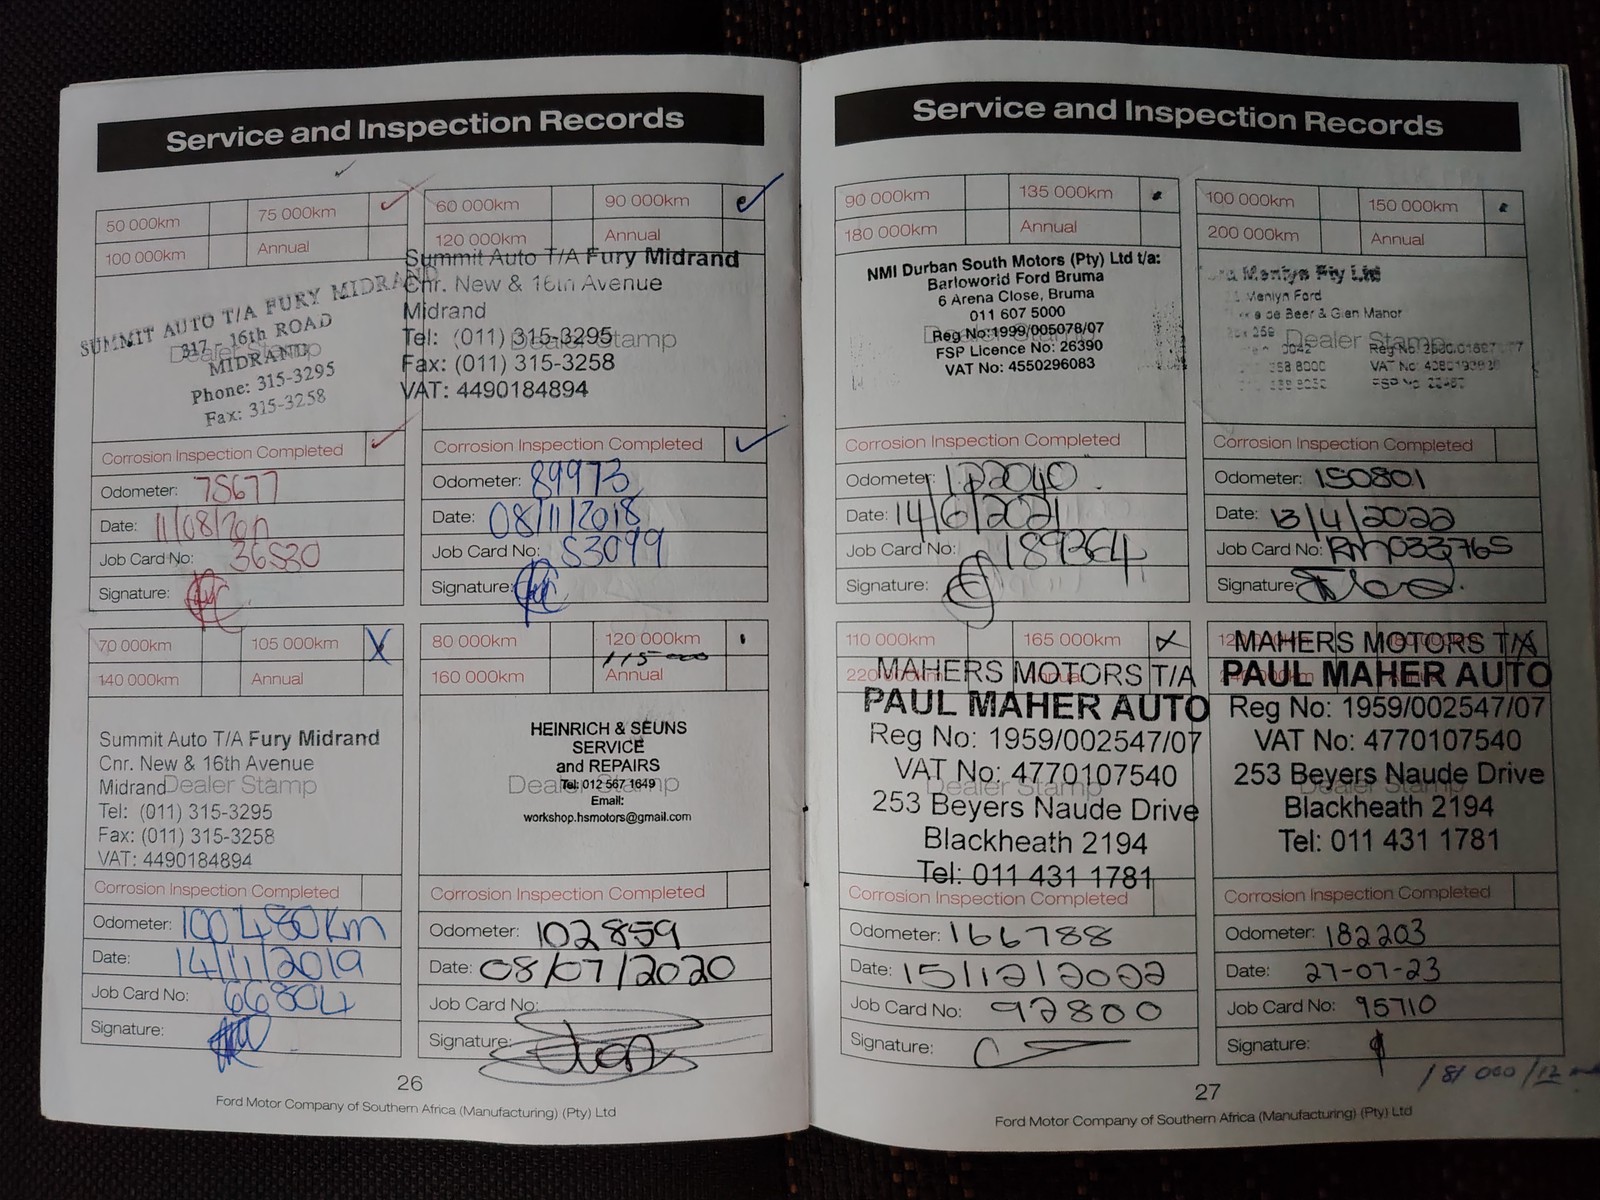 Service and Inspection Records
50 000km
75 000km
100 000km
Annual
SUMMIT AUTO T/A FURY MIDRAND
317 - 16th ROAD
MIDRAND
Phone: 315-3295
Fax: 315-3258
Dealer Stamp
Corrosion Inspection Completed
Odometer: 75677
Date: 11/08/201
Job Card No: 36530
Signature:
60 000km
90 000km
120 000km
Annual
Summit Auto T/A Fury Midrand
Cnr. New & 16th Avenue
Midrand
Tel: (011) 315-3295
Dealer Stamp
Fax: (011) 315-3258
VAT: 4490184894
Corrosion Inspection Completed
Odometer: 89973
Date: 08/11/2018
Job Card No: 53099
Signature:
70 000km
105 000km X
140 000km
Annual
Summit Auto T/A Fury Midrand
Cnr. New & 16th Avenue
Midrand
Dealer Stamp
Tel: (011) 315-3295
Fax: (011) 315-3258
VAT: 4490184894
Corrosion Inspection Completed
Odometer: 100480km
Date: 14/11/2019
Job Card No: 66804
Signature:
80 000km
120 000km
115 000
160 000km
Annual
HEINRICH & SEUNS
SERVICE
and REPAIRS
Tel: 012 567 1649
Dealer Stamp
Email:
workshop.hsmotors@gmail.com
Corrosion Inspection Completed
Odometer: 102859
Date: 08/07/2020
Job Card No:
Signature:
26
Ford Motor Company of Southern Africa (Manufacturing) (Pty) Ltd
Service and Inspection Records
90 000km
135 000km
180 000km
Annual
NMI Durban South Motors (Pty) Ltd t/a:
Barloworld Ford Bruma
6 Arena Close, Bruma
011 607 5000
Reg No:1999/005078/07
Dealer Stamp
FSP Licence No: 26390
VAT No: 4550296083
Corrosion Inspection Completed
Odometer: 122040
Date: 14/6/2021
Job Card No: 189364
Signature:
100 000km
150 000km
200 000km
Annual
Menlyn Pty Ltd
Menlyn Ford
de Beer & Glen Manor
Dealer Stamp
0042
Reg No:
VAT No:
FSP No
Corrosion Inspection Completed
Odometer: 150801
Date: 13/4/2022
Job Card No: RM033765
Signature:
110 000km
165 000km X
220 000km
Annual
MAHERS MOTORS T/A
PAUL MAHER AUTO
Reg No: 1959/002547/07
VAT No: 4770107540
Dealer Stamp
253 Beyers Naude Drive
Blackheath 2194
Tel: 011 431 1781
Corrosion Inspection Completed
Odometer: 166788
Date: 15/12/2022
Job Card No: 92800
Signature:
MAHERS MOTORS T/A
PAUL MAHER AUTO
Reg No: 1959/002547/07
VAT No: 4770107540
253 Beyers Naude Drive
Dealer Stamp
Blackheath 2194
Tel: 011 431 1781
Corrosion Inspection Completed
Odometer: 182203
Date: 27-07-23
Job Card No: 95710
Signature:
181 000/12
27
Ford Motor Company of Southern Africa (Manufacturing) (Pty) Ltd